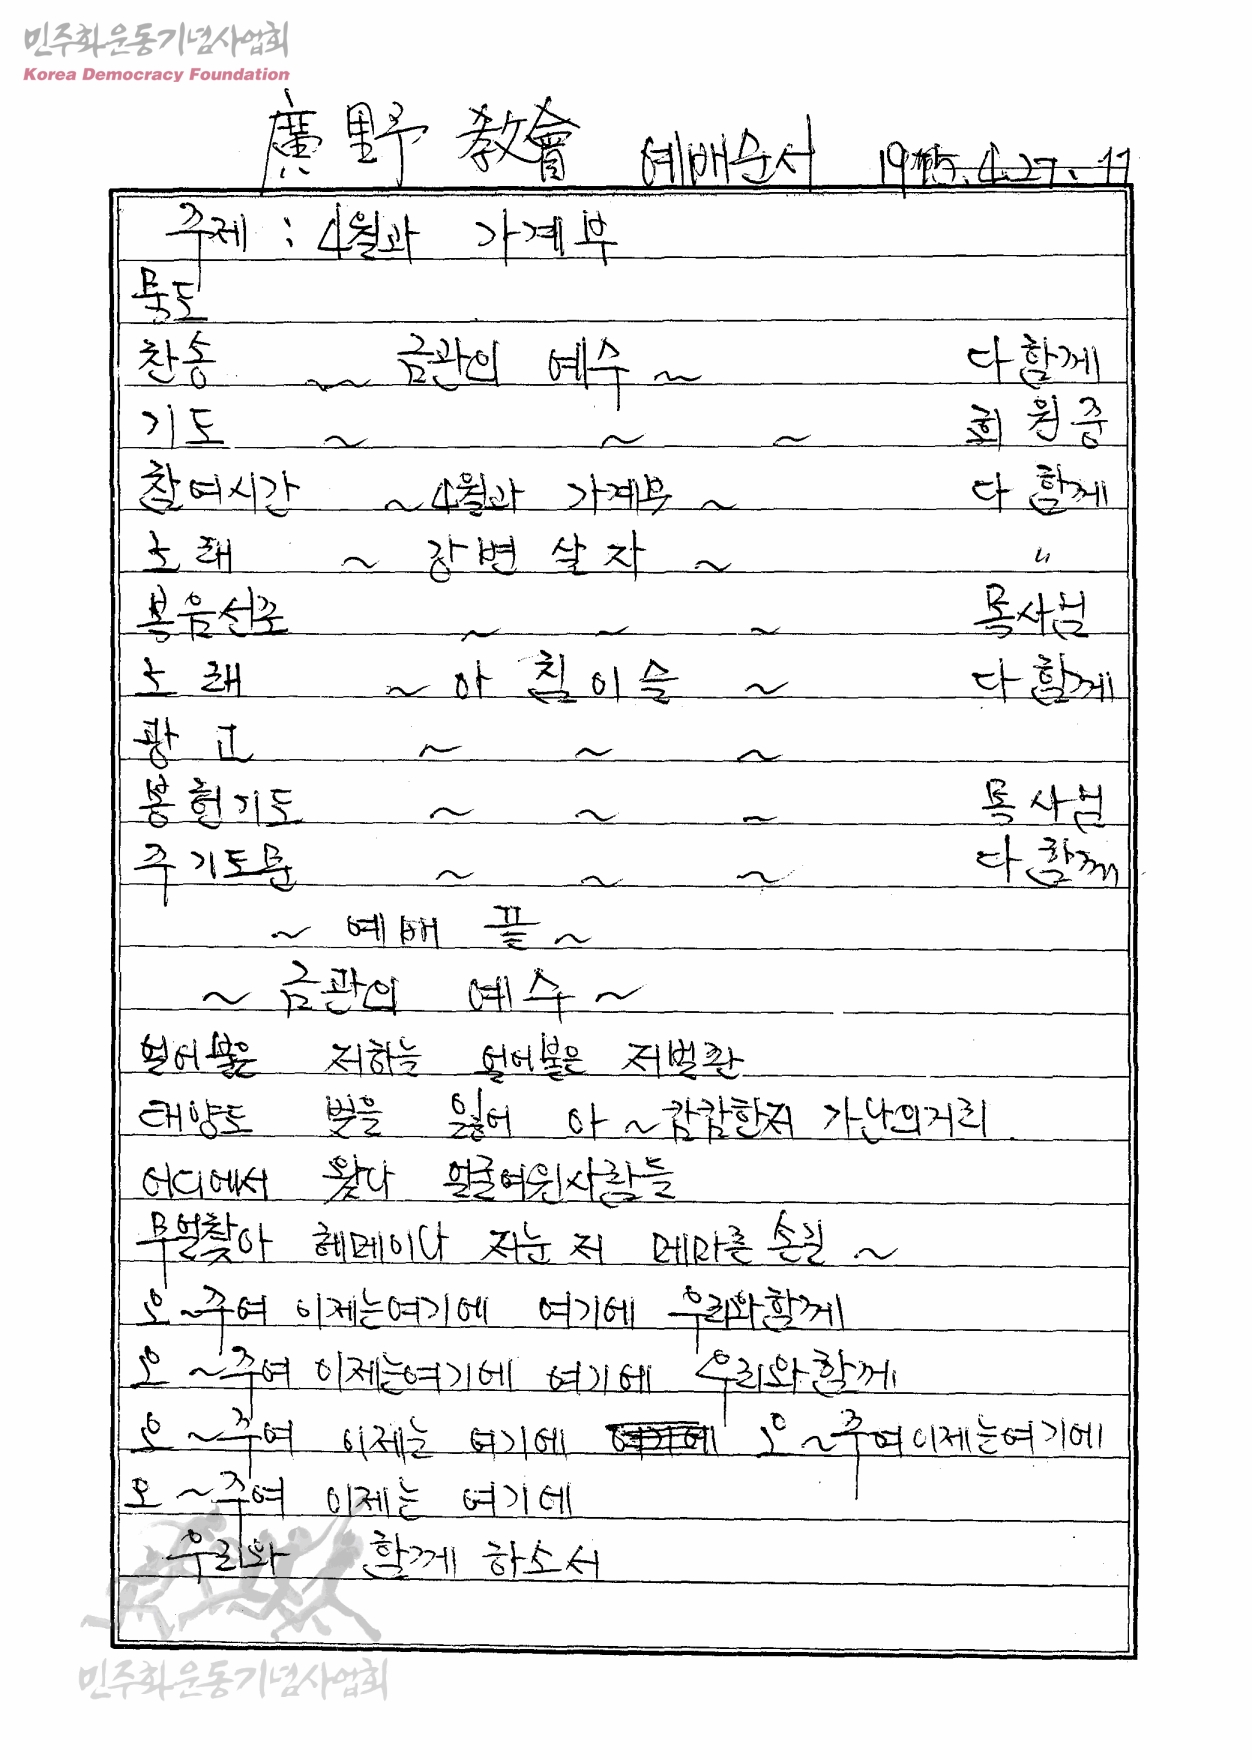 민주화운동기념사업회
Korea Democracy Foundation
廣野 敎會 예배순서 1975.4.27.
주제 : 4월과 가계부
묵도
찬송 ~~ 금관의 예수 ~ 다함께
기도 ~ ~ ~ 회원중
참여시간 ~ 4월과 가계부 ~ 다 함께
노래 ~ 강변 살자 ~ 〃
복음선포 ~ ~ ~ 목사님
노래 ~ 아침이슬 ~ 다 함께
광고 ~ ~ ~
봉헌기도 ~ ~ ~ 목사님
주기도문 ~ ~ ~ 다 함께
~ 예배 끝 ~
~ 금관의 예수 ~
얼어붙은 저하늘 얼어붙은 저벌판
태양도 빛을 잃어 아 ~ 캄캄한저 가난의거리
어디에서 왔나 얼굴여윈사람들
무얼찾아 헤메이나 저눈 저 메마른 손길 ~
오 ~ 주여 이제는여기에 여기에 우리와함께
오 ~ 주여 이제는여기에 여기에 우리와 함께
오 ~ 주여 이제는 여기에 여기에 오 ~ 주여이제는여기에
오 ~ 주여 이제는 여기에
우리와 함께 하소서
민주화운동기념사업회